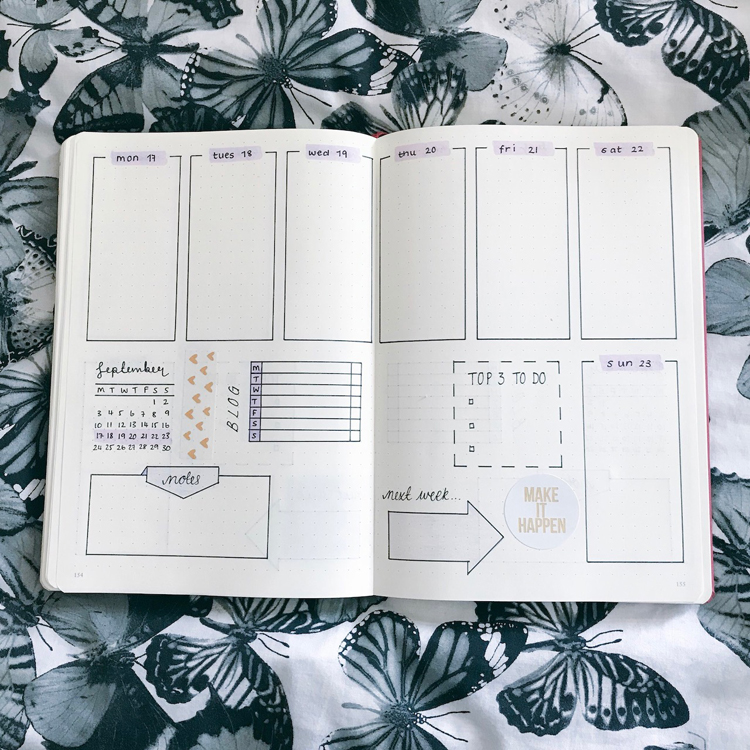 mon 17
tues 18
wed 19
thu 20
fri 21
sat 22
September
M T W T F S S
1 2
3 4 5 6 7 8 9
10 11 12 13 14 15 16
17 18 19 20 21 22 23
24 25 26 27 28 29 30
BLOG
M
T
W
T
F
S
S
TOP 3 TO DO
sun 23
notes
next week...
MAKE
IT
HAPPEN
154
155